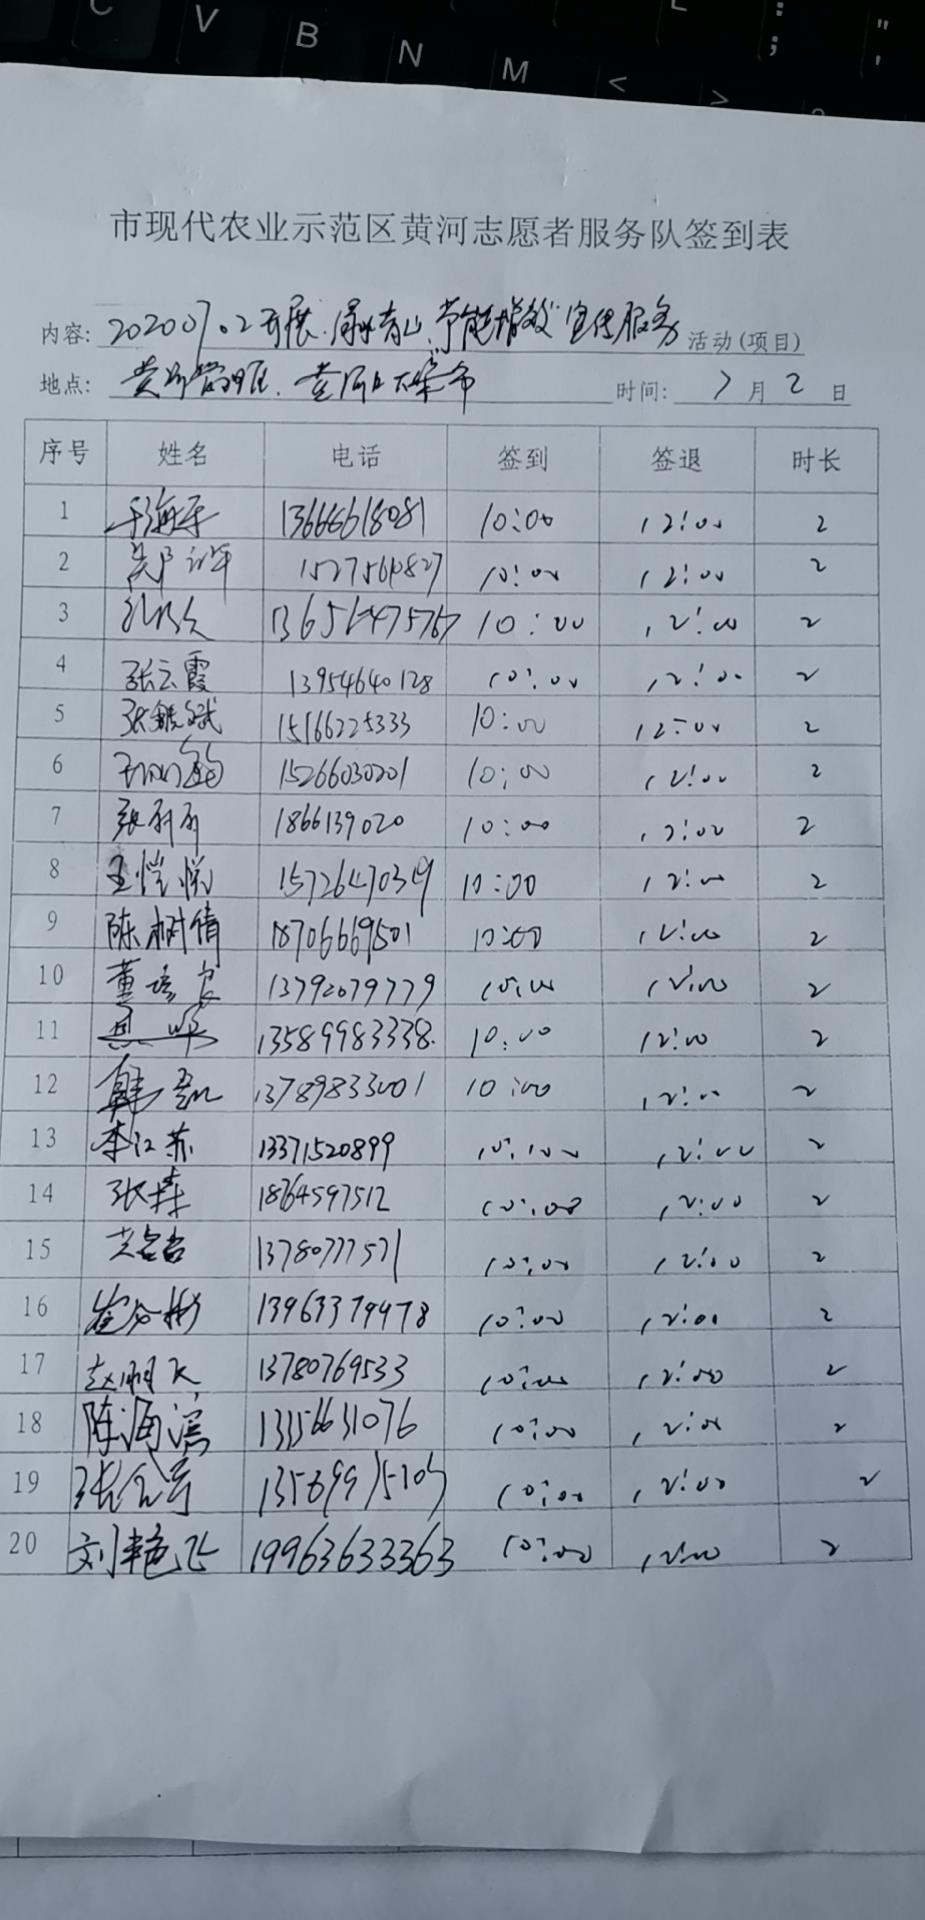 C V B N M < >
市现代农业示范区黄河志愿者服务队签到表
内容: 20200702开展"绿水青山,节能增效"宣传服务 活动(项目)
地点: 时间: 7月2日
序号 姓名 电话 签到 签退 时长
1 于海平 13666618081 10:00 12:00 2
2 10:00 12:00 2
3 10:00 12:00 2
4 张云霞 13954640128 10:00 12:00 2
5 15166225333 10:00 12:00 2
6 15266030201 10:00 12:00 2
7 张丽丽 1866139020 10:00 12:00 2
8 王恺悦 10:00 12:00 2
9 陈树倩 18706669501 10:00 12:00 2
10 董 13792079779 10:00 12:00 2
11 13589983338. 10:00 12:00 2
12 韩磊 13789833001 10:00 12:00 2
13 李江苏 13371520899 10:00 12:00 2
14 张森 18764597512 10:00 12:00 2
15 13780777571 10:00 12:00 2
16 崔 13963379978 10:00 12:00 2
17 赵明飞 13780769533 10:00 12:00 2
18 陈海滨 13356631076 10:00 12:00 2
19 张 10:00 12:00 2
20 刘艳飞 19963633363 10:00 12:00 2